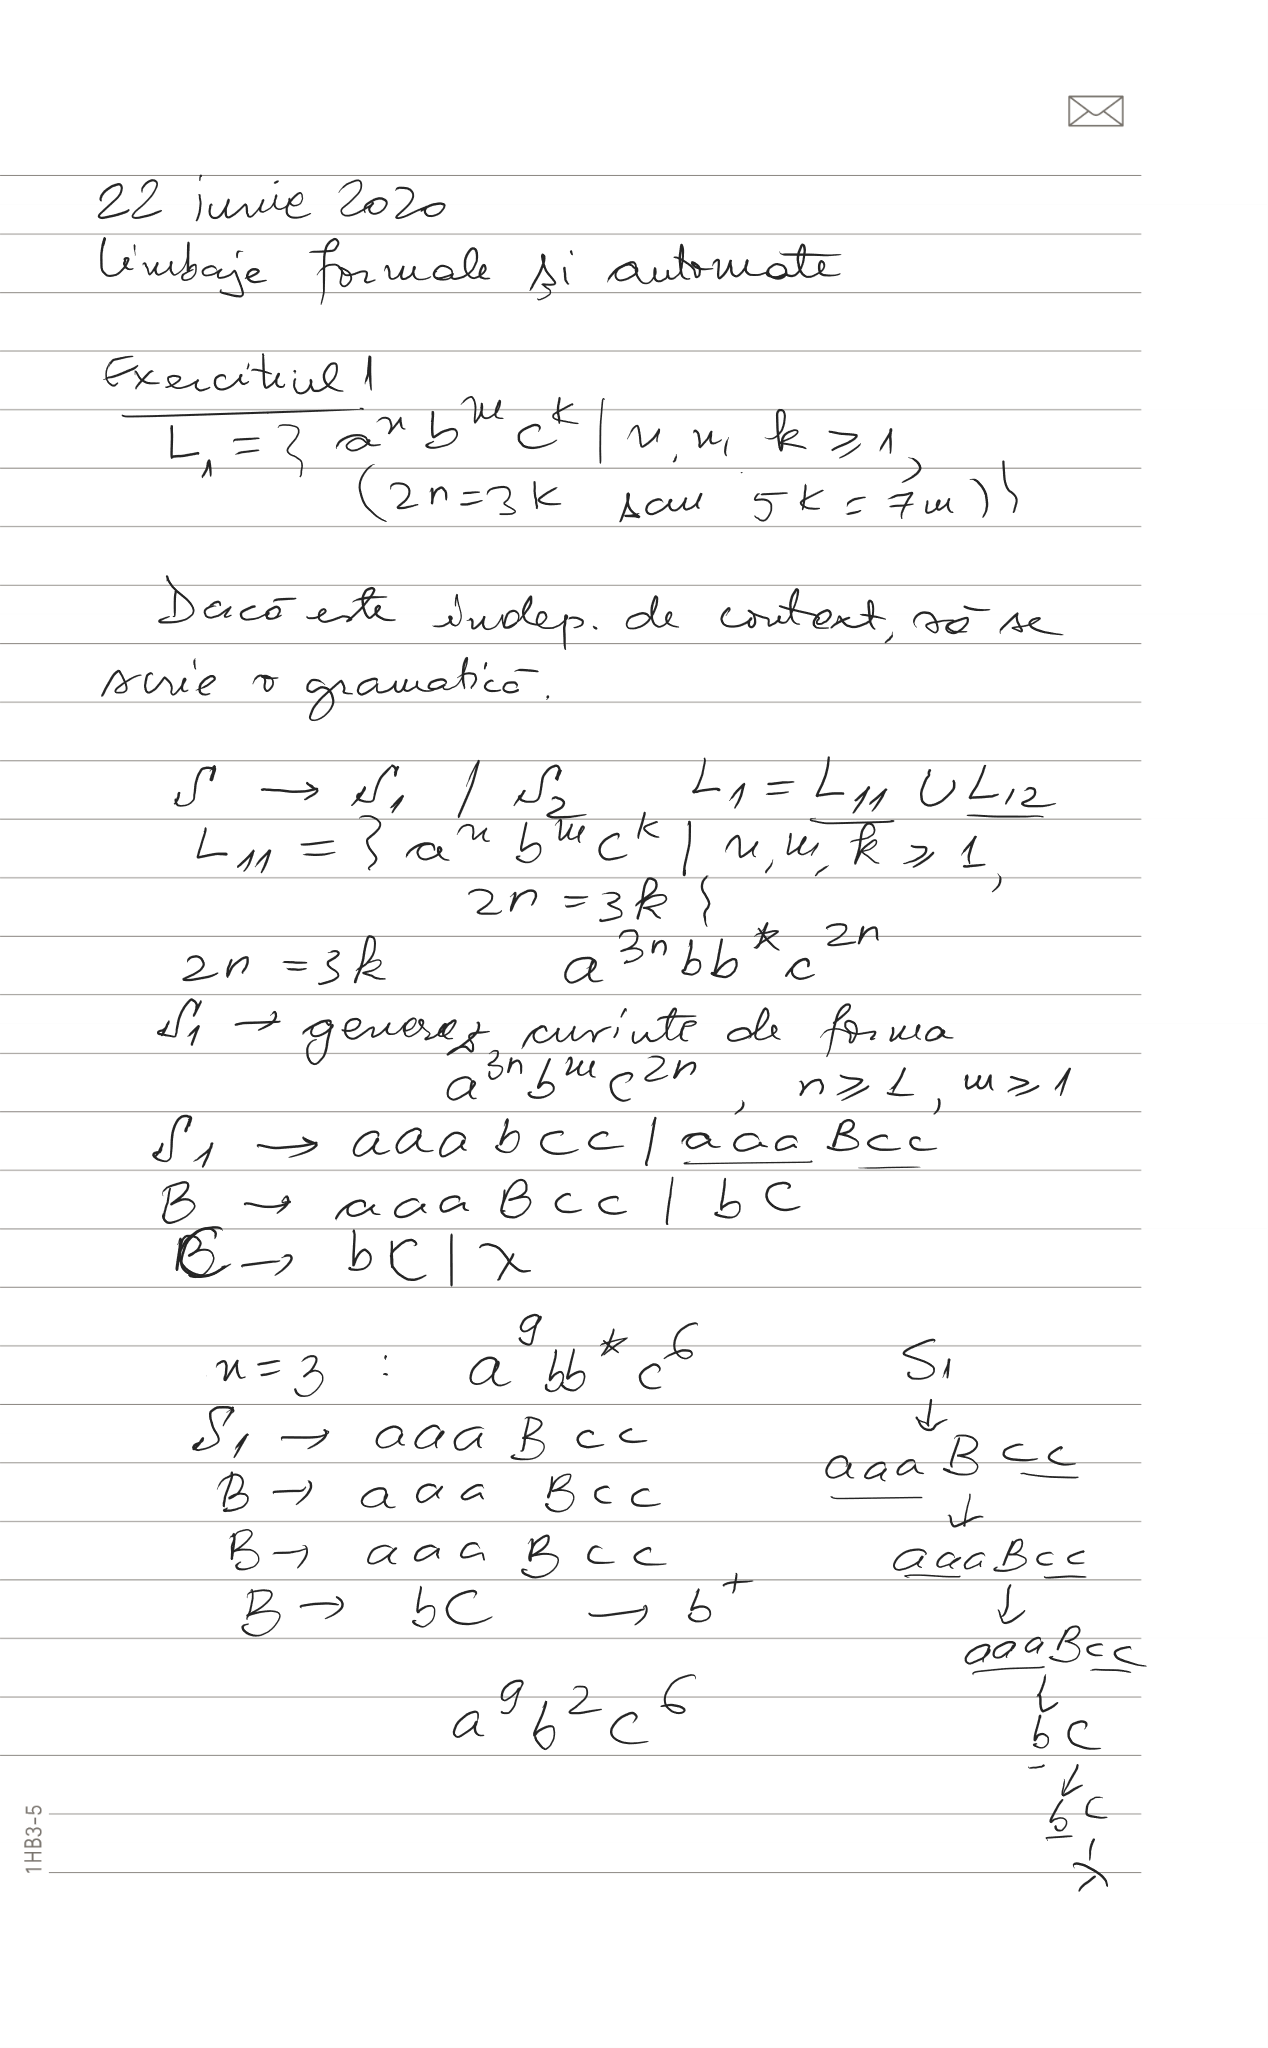 22 iunie 2020
Limbaje formale și automate
Exercițiul 1
L₁ = { aⁿ bᵐ cᵏ | n, m, k ≥ 1,
(2n = 3k sau 5k = 7m) }
Dacă este indep. de context, să se
scrie o gramatică.
S → S₁ | S₂ L₁ = L₁₁ ∪ L₁₂
L₁₁ = { aⁿ bᵐ cᵏ | n, m, k ≥ 1,
2n = 3k }
2n = 3k a³ⁿ bb* c²ⁿ
S₁ → generez cuvinte de forma
a³ⁿ bᵐ c²ⁿ, n ≥ 1, m ≥ 1
S₁ → aaabcc | aaaBcc
B → aaaBcc | bC
C → bC | λ
n = 3 : a⁹ bb* c⁶
S₁ → aaaBcc
B → aaa Bcc
B → aaa Bcc
B → bC → b⁺
a⁹ b² c⁶
S₁
↓
aaaBcc
↓
aaaBcc
↓
aaaBcc
↓
bC
↓
bC
λ
1HB3-5